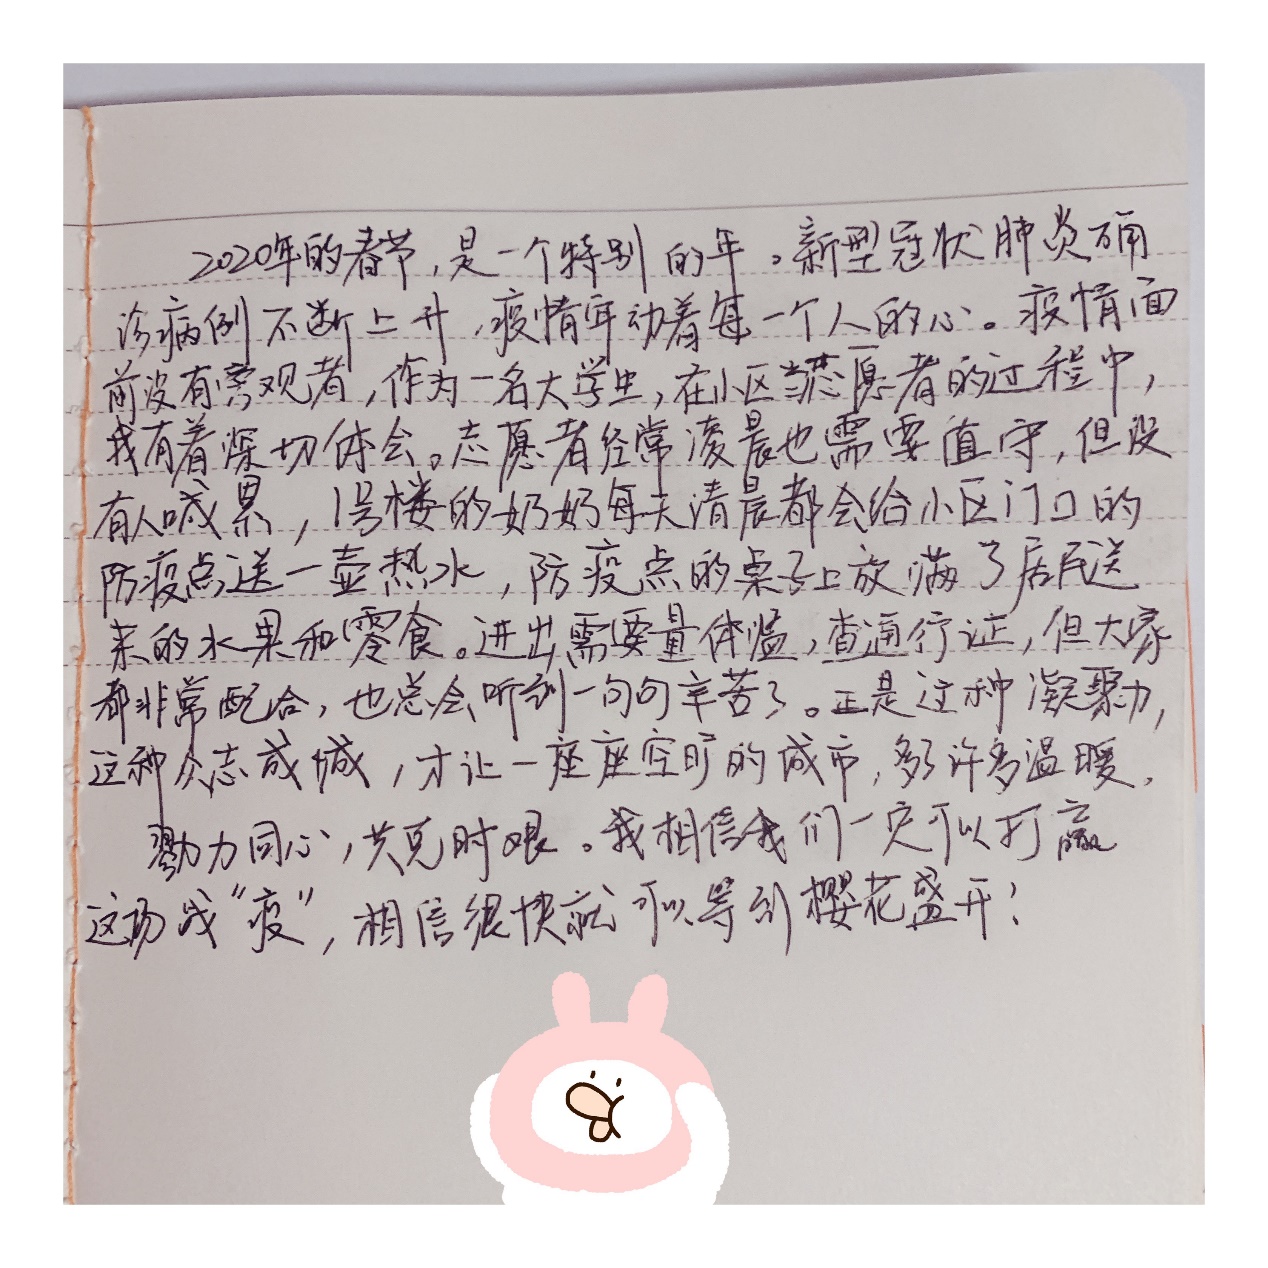 2020年的春节,是一个特别的年。新型冠状肺炎确
诊病例不断上升,疫情牵动着每一个人的心。疫情面
前没有旁观者,作为一名大学生,在小区当志愿者的过程中,
我有着深切体会。志愿者经常凌晨也需要值守,但没
有人喊累,1号楼的奶奶每天清晨都会给小区门口的
防疫点送一壶热水,防疫点的桌子上放满了居民送
来的水果和零食。进出需要量体温,查通行证,但大家
都非常配合,也总会听到一句句辛苦了。正是这种凝聚力,
这种众志成城,才让一座座空旷的城市,多了许多温暖。
勠力同心,共克时艰。我相信我们一定可以打赢
这场战“疫”,相信很快就可以等到樱花盛开!